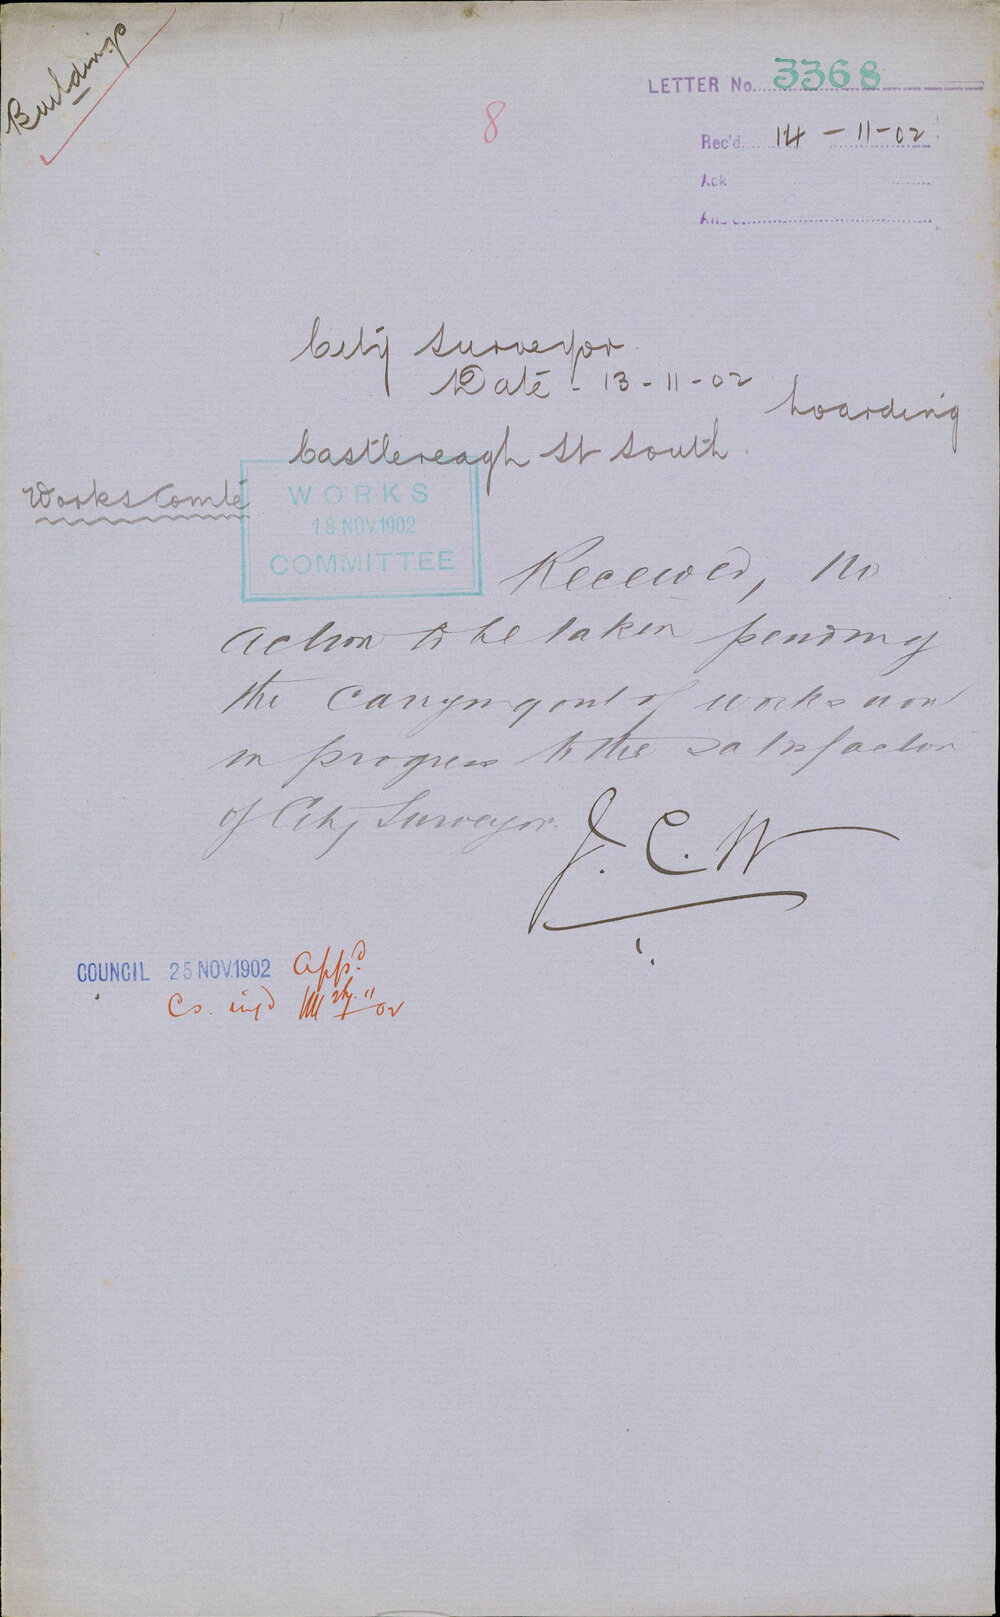 Buildings
LETTER No. 3368
8
Rec'd. 14-11-02
Ack
City Surveyor
Date - 13-11-02
hoarding
Castlereagh St South.
Works Comtè
WORKS
18 NOV.1902
COMMITTEE
Received, no
action to be taken pending
the carrying out of works now
in progress to the satisfaction
of City Surveyor.
J. C. W
COUNCIL 25 NOV.1902 Appd.
Cs. 11/02